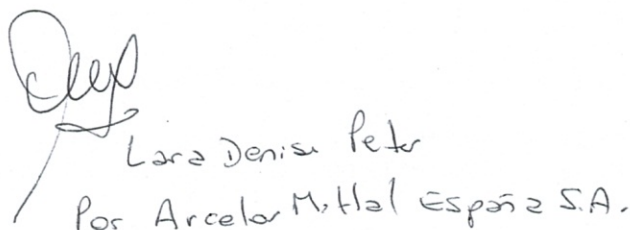 Lara Denise Peter
Por Arcelor Mittal España S.A.